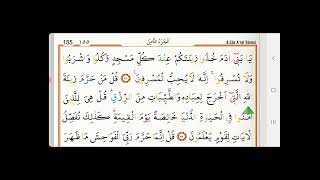 155 اَلْجُزْءُ الثَّامِنُ
يَا بَنِيْ اٰدَمَ خُذُوْا زِيْنَتَكُمْ عِنْدَ كُلِّ مَسْجِدٍ وَّكُلُوْا وَاشْرَبُوْا
وَلَا تُسْرِفُوْا ۚ اِنَّهٗ لَا يُحِبُّ الْمُسْرِفِيْنَ قُلْ مَنْ حَرَّمَ زِيْنَةَ
اللّٰهِ الَّتِيْٓ اَخْرَجَ لِعِبَادِهٖ وَالطَّيِّبَاتِ مِنَ الرِّزْقِ ۚ قُلْ هِيَ لِلَّذِيْنَ
اٰمَنُوْا فِي الْحَيٰوةِ الدُّنْيَا خَالِصَةً يَّوْمَ الْقِيٰمَةِ ۚ كَذٰلِكَ نُفَصِّلُ
الْاٰيَاتِ لِقَوْمٍ يَّعْلَمُوْنَ قُلْ اِنَّمَا حَرَّمَ رَبِّيَ الْفَوَاحِشَ مَا ظَهَرَ